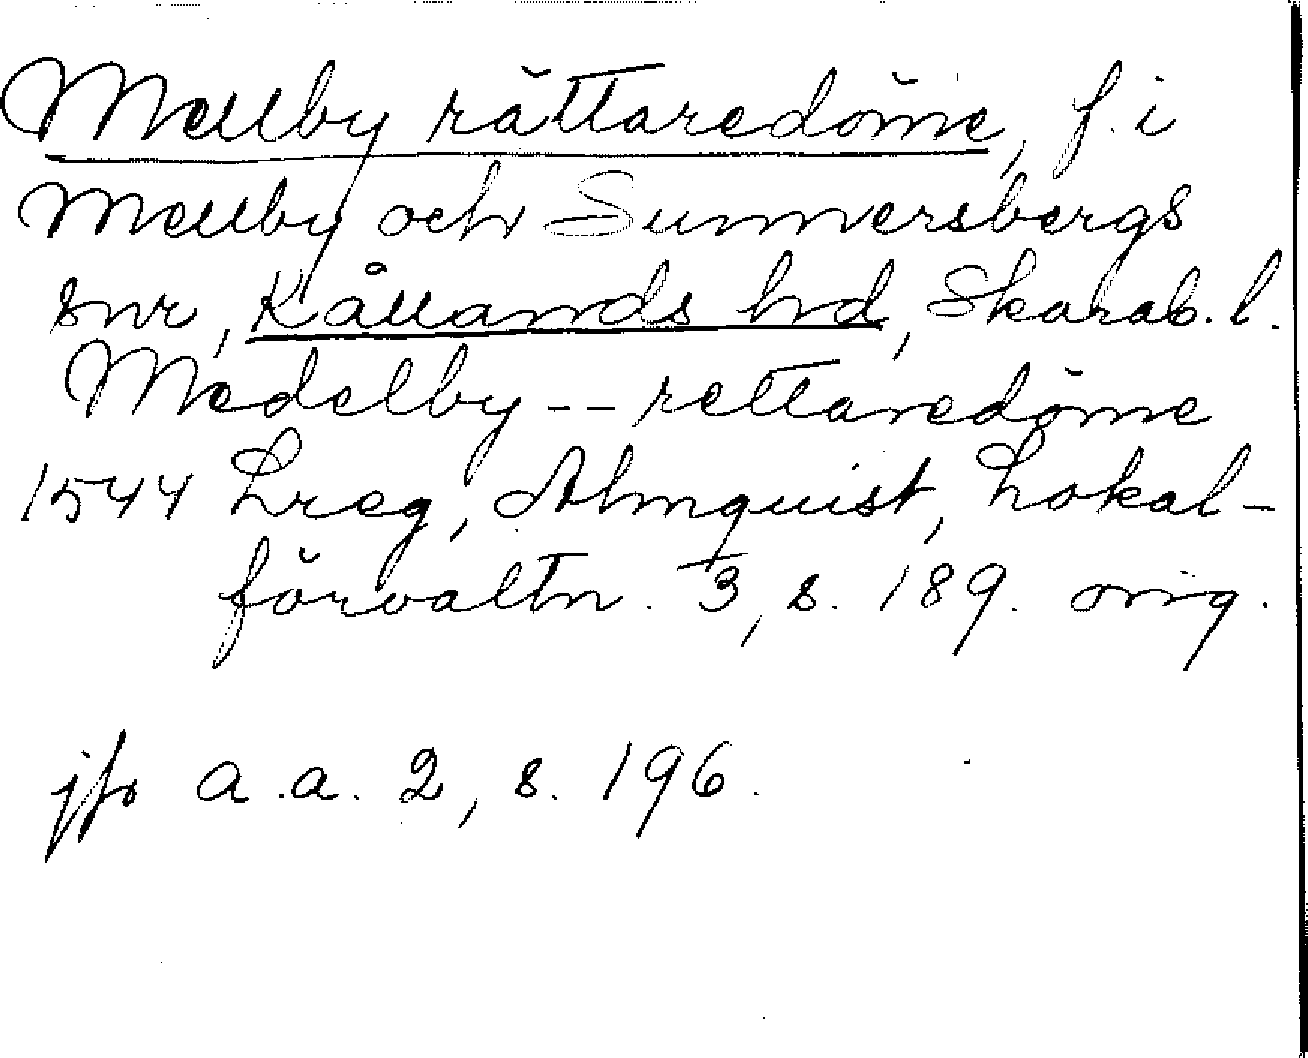 Mellby rättaredöme, f. i
Mellby och Sunnersbergs
snr, Kållands hd, Skarab. l.
Medelby -- rettaredöme
1544 Lreg, Almquist, Lokal-
förvaltn. 3, s. 189. orig.
jfr a.a. 2, s. 196.